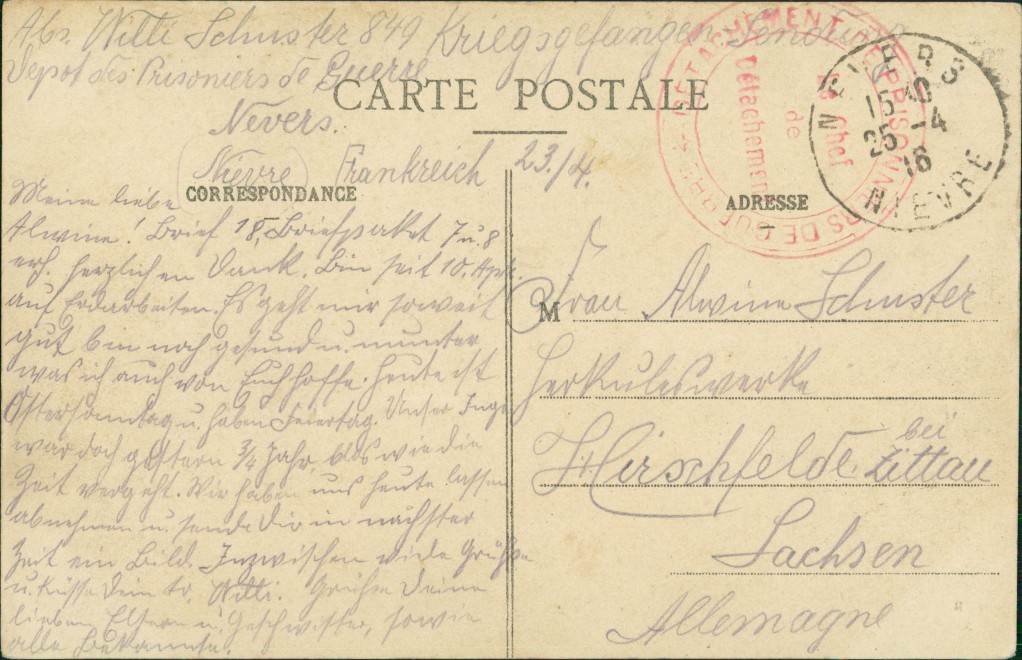 Abs. Willi Schuster 849 Kriegsgefangen Sendung
Depot des Prisoniers de Guerre
CARTE POSTALE
Nevers.
Nièvre Frankreich 23./4.
DETACHEMENT DE PRISONNIERS DE GUERRE
Le Chef
de
Détachement
NEVERS
15 40
25 -4
16
NIEVRE
CORRESPONDANCE
Meine liebe
Alwine! Brief 18, Briefpaket 7 u. 8
erh. herzlichen Dank. Bin seit 10. Apr.
auf Erdarbeiten. Es geht mir soweit
gut bin noch gesund u. munter
was ich auch von Euch hoffe. Heute ist
Ostersonntag u. haben Feiertag. Unser Junge
war doch gestern 3/4 Jahr, bloß wie die
Zeit vergeht. Wir haben uns heute lassen
abnehmen u. sende Dir in nächster
Zeit ein Bild. Inzwischen viele Grüße
u. Küsse Dein tr. Willi. Grüße Deine
lieben Eltern u. Geschwister, sowie
alle Bekannte.
ADRESSE
M Frau Alwine Schuster
Herkuleswerke
Hirschfelde bei Zittau
Sachsen
Allemagne